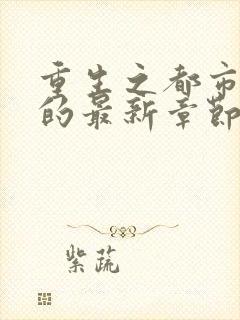 重生之都市
的最新章节
紫疏